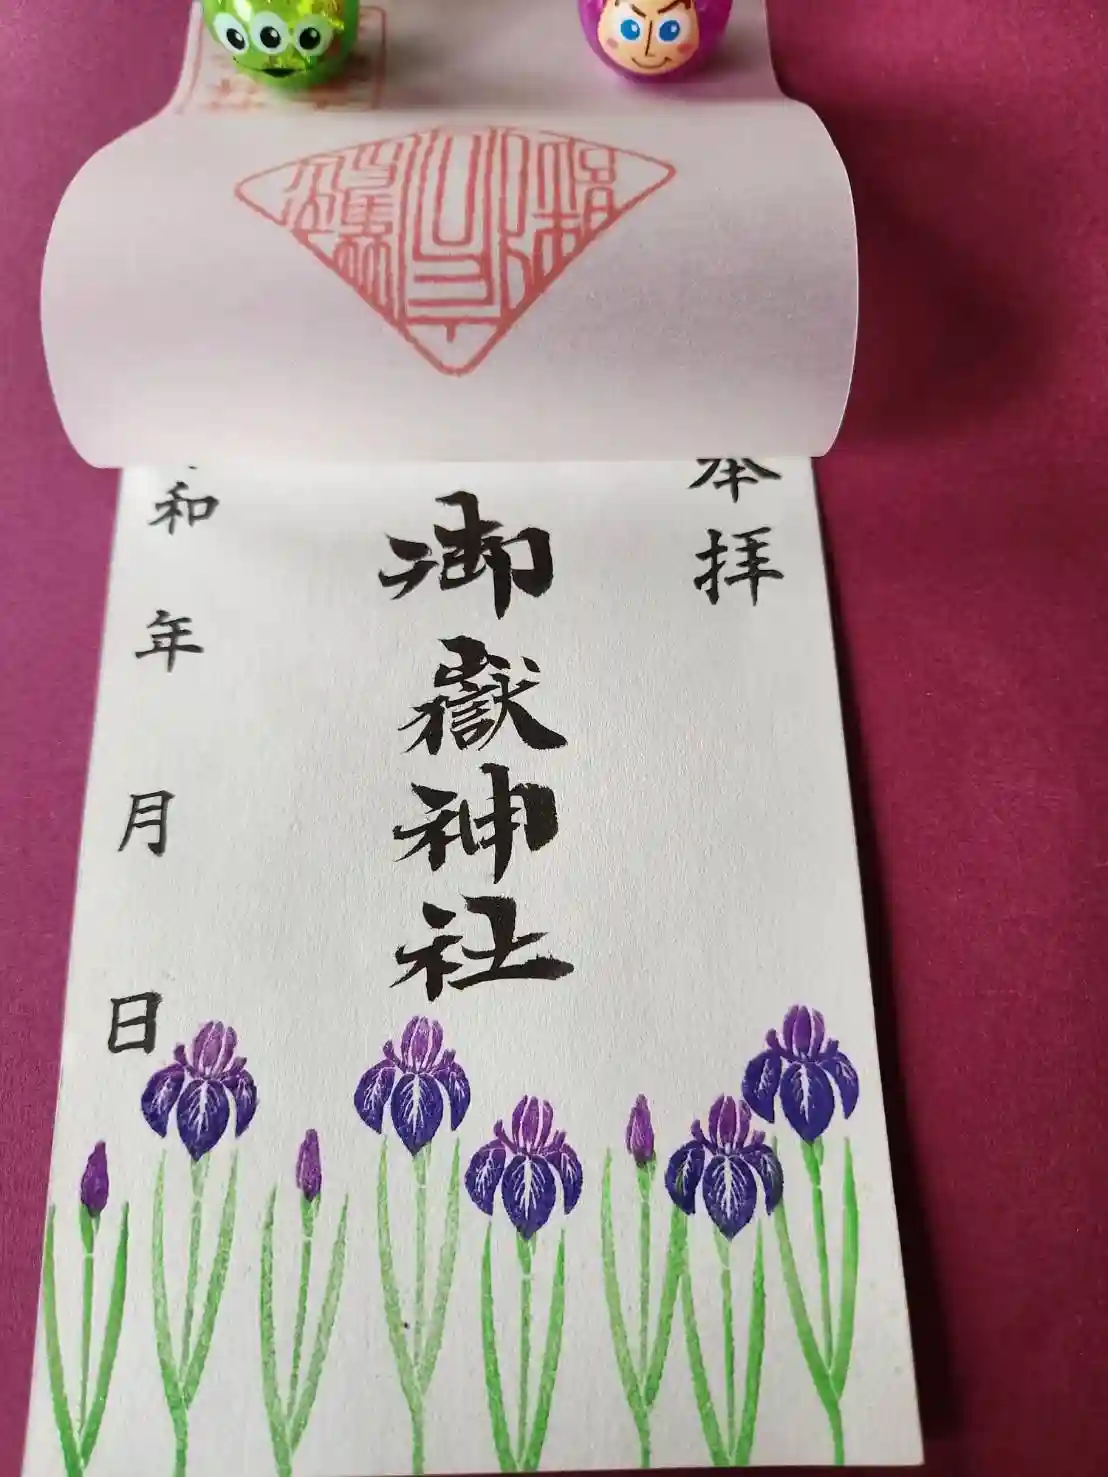 本拝
御嶽神社
和年月日